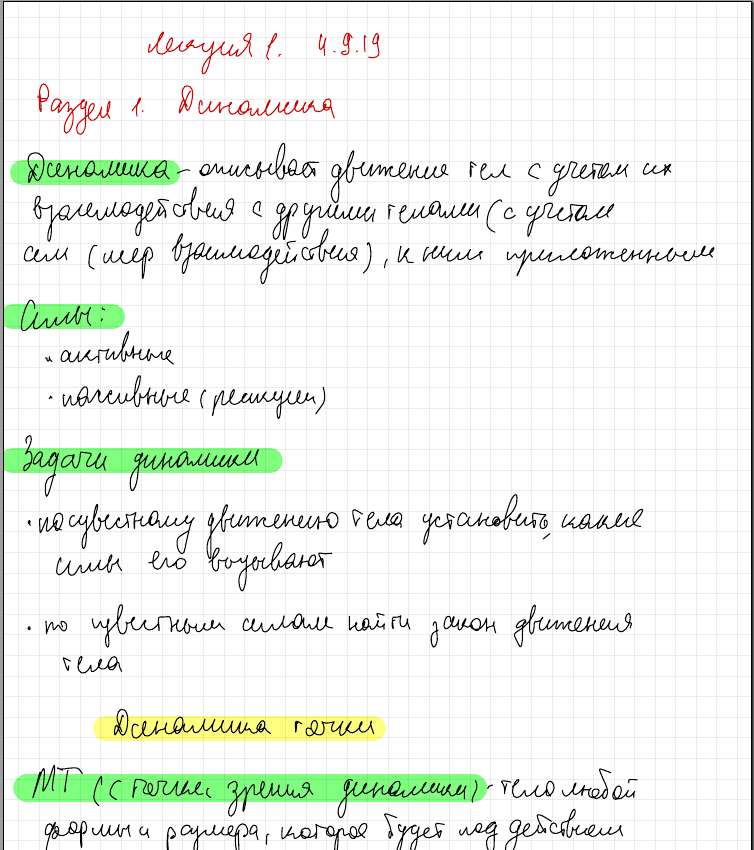 Лекция 1. 4.9.19
Раздел 1. Динамика
Динамика - описывает движение тел с учетом их
взаимодействия с другими телами (с учетом
сил (мер взаимодействия), к ним приложенным
Силы:
• активные
• пассивные (реакции)
Задачи динамики
• по известному движению тела установить, какие
силы его вызывают
• по известным силам найти закон движения
тела
Динамика точки
МТ (с точки зрения динамики) - тело любой
формы и размера, которое будет под действием